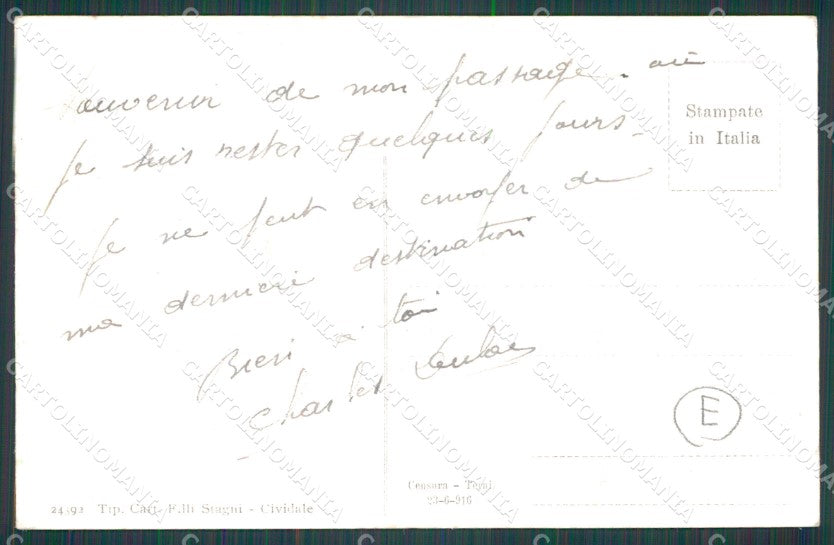 Souvenir de mon passage. où
Je suis rester quelques jours.
Je ne peut en envoyer de
ma derniere destination
Bien à toi
Charles
Stampate
in Italia
E
Censura - Topal
23-6-916
24392 Tip. Cart. F.lli Stagni - Cividale
CARTOLINOMANIA